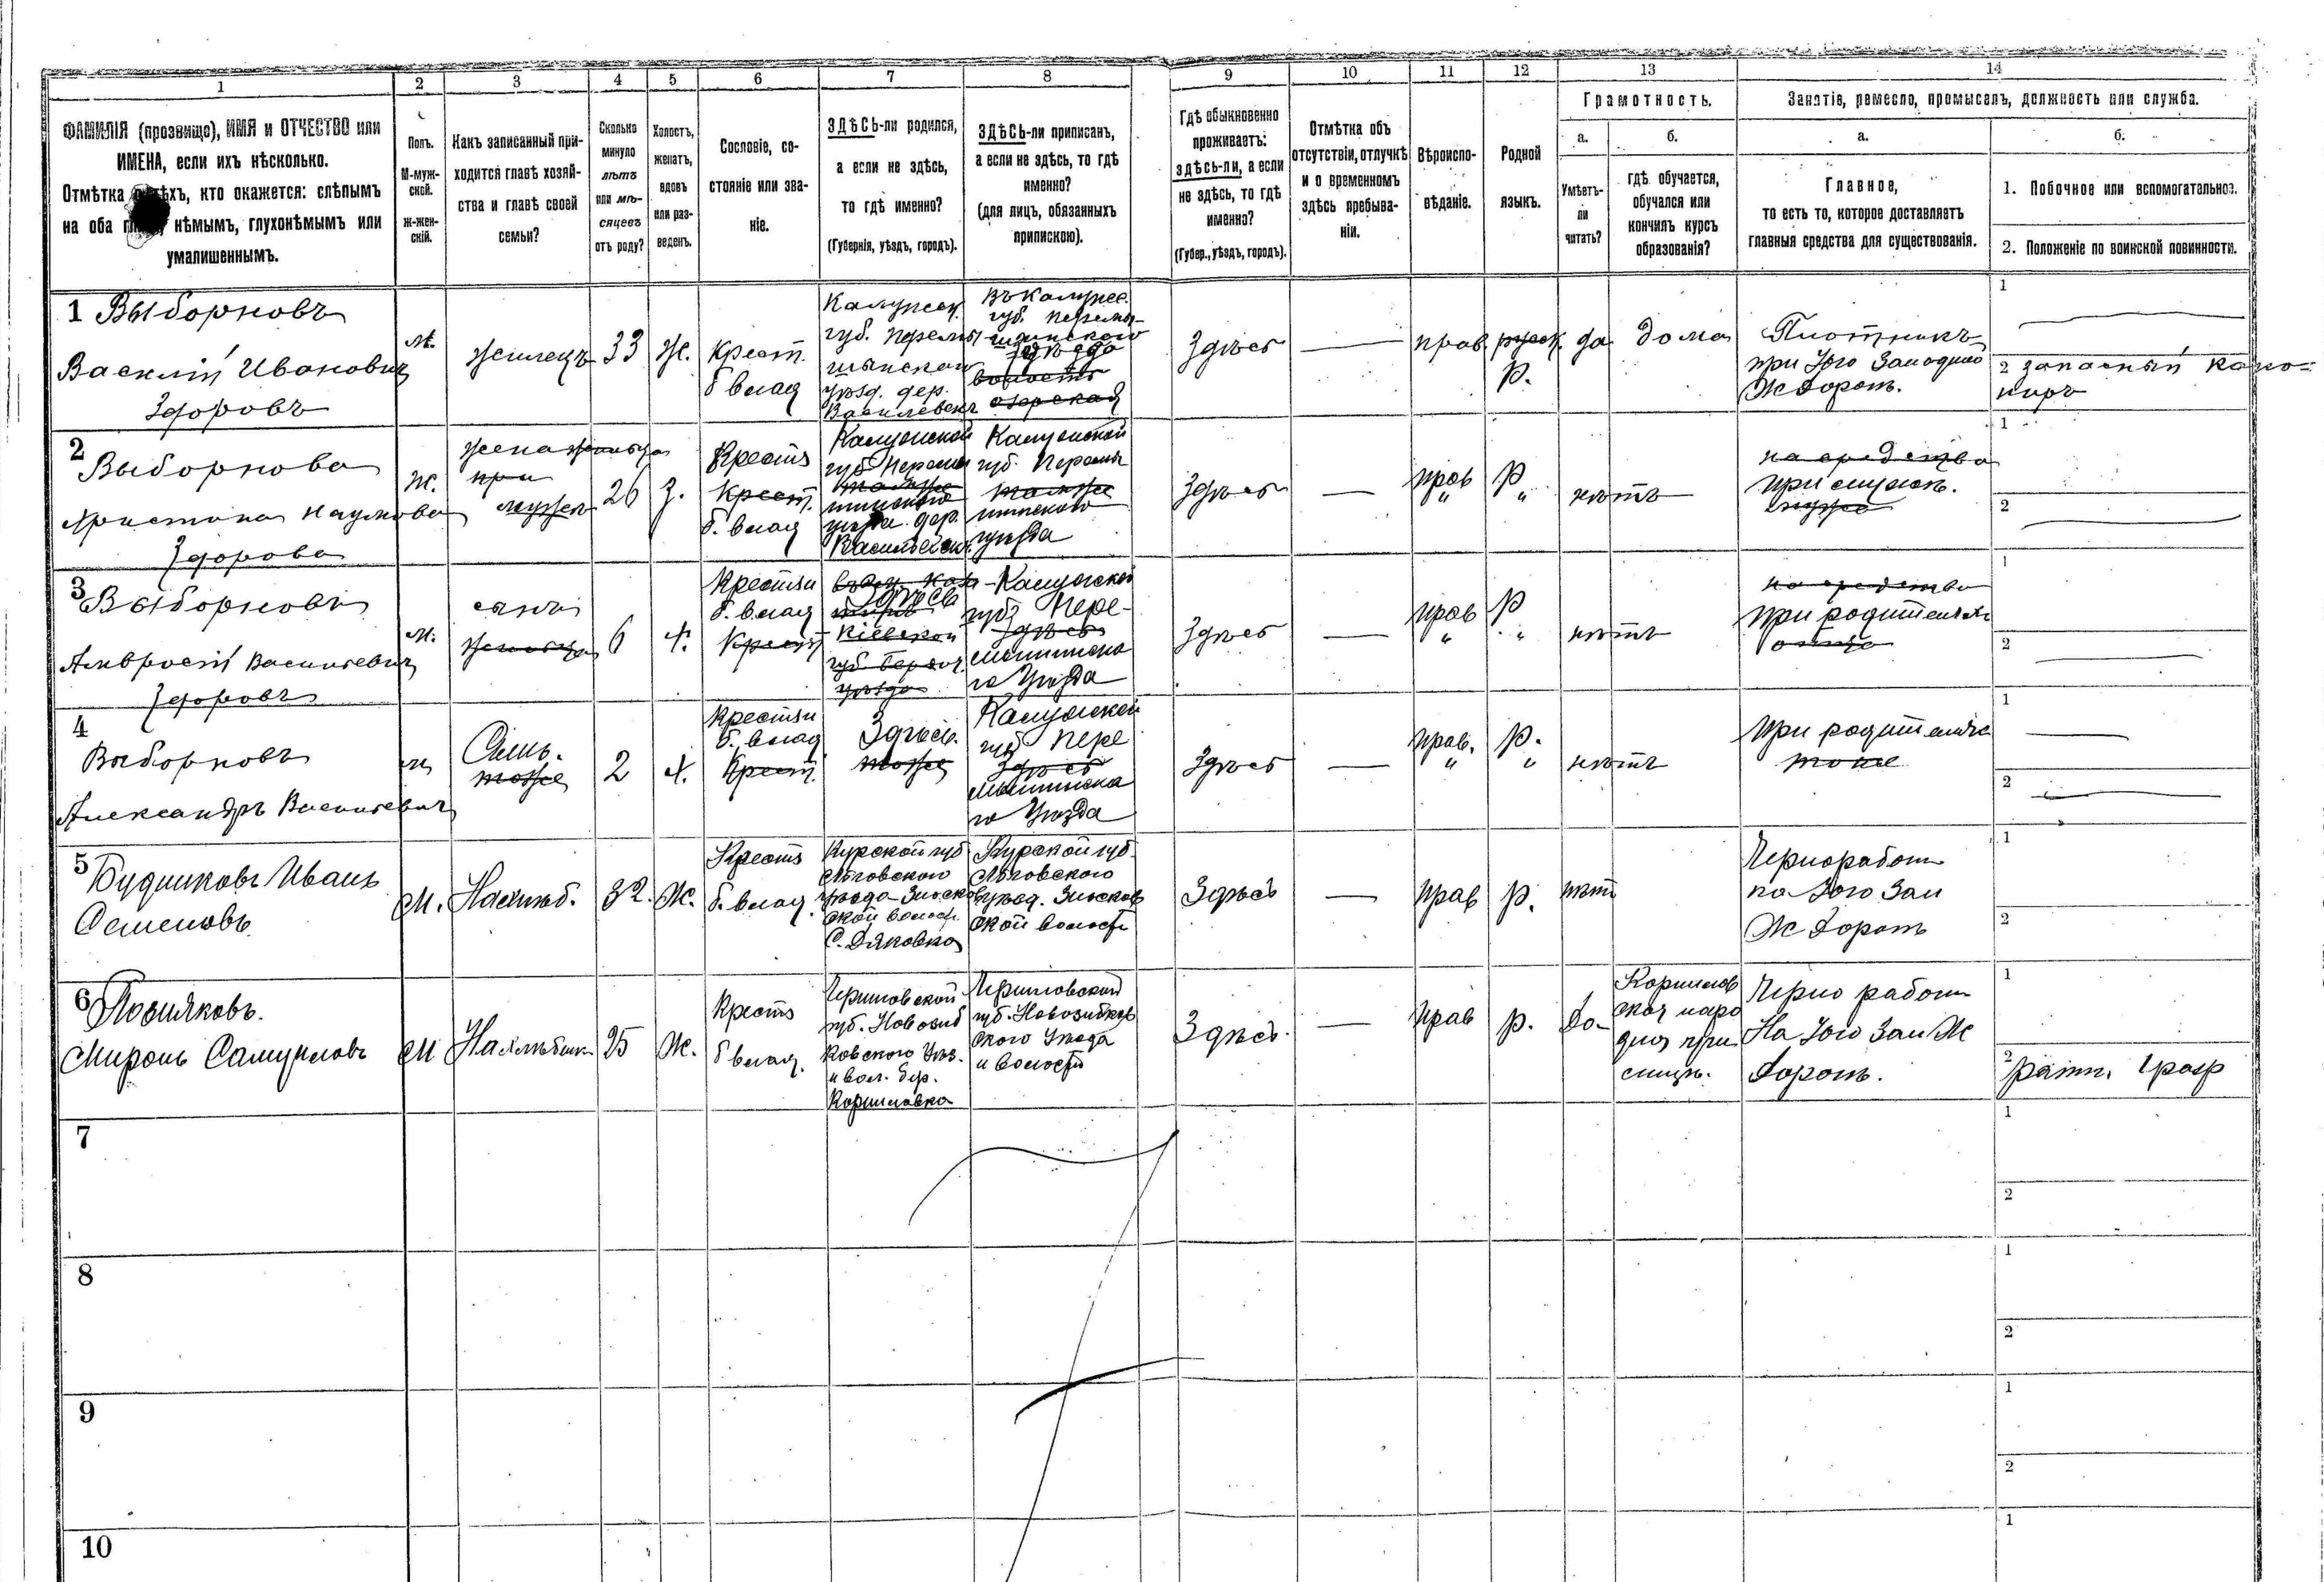 1 2 3 4 5 6 7 8 9 10 11 12 13 14
ФАМИЛІЯ (прозвище), ИМЯ и ОТЧЕСТВО или
ИМЕНА, если ихъ нѣсколько.
Отмѣтка о тѣхъ, кто окажется: слѣпымъ
на оба нѣмымъ, глухонѣмымъ или
умалишеннымъ.
Полъ.
М-муж-
ской.
Ж-жен-
скій.
Какъ записанный при-
ходится главѣ хозяй-
ства и главѣ своей
семьи?
Сколько
минуло
лѣтъ
или мѣ-
сяцевъ
отъ роду?
Холостъ,
женатъ,
вдовъ
или раз-
веденъ.
Сословіе, со-
стояніе или зва-
ніе.
ЗДѢСЬ-ли родился,
а если не здѣсь,
то гдѣ именно?
(Губернія, уѣздъ, городъ).
ЗДѢСЬ-ли приписанъ,
а если не здѣсь, то гдѣ
именно?
(для лицъ, обязанныхъ
припискою).
Гдѣ обыкновенно
проживаетъ:
здѣсь-ли, а если
не здѣсь, то гдѣ
именно?
(Губер., уѣздъ, городъ).
Отмѣтка объ
отсутствіи, отлучкѣ
и о временномъ
здѣсь пребыва-
ніи.
Вѣроиспо-
вѣданіе.
Родной
языкъ.
Грамотность.
а.
Умѣетъ-
ли
читать?
б.
гдѣ обучается,
обучался или
кончилъ курсъ
образованія?
Занятіе, ремесло, промыселъ, должность или служба.
а.
Главное,
то есть то, которое доставляетъ
главныя средства для существованія.
б.
1. Побочное или вспомогательное.
2. Положеніе по воинской повинности.
1 Выборновъ
Василій Ивановичъ
Здоровъ
м.
жилецъ
33
Ж.
Крест.
б влад
Калужск.
губ. Перемы-
шльскаго
уѣзд. дер.
въ Калужс.
губ. Перемы-
уѣзда
волость
Здѣсь
прав.
русск.
Р.
да
дома
Плотникъ
при Юго Западной
Ж Дорогѣ.
1
2 запасный кано-
ниръ
2
Выборнова
Христина Наумова
Здорова
ж.
жена жильца
при
мужѣ
26
З.
Крестъ
Крест.
б. влад
Калужской
губ Перемы
также
дер.
Калужской
губ. Перемы
также
уѣзда
Здѣсь
прав
"
Р
"
нѣтъ
на средства
при мужѣ.
мужа
1
2
3
Выборновъ
Амвросій Васильевичъ
Здоровъ
м.
сынъ
жильца
6
х.
Крестьян
б. влад
Крест
Здѣсь
Кіевской
губ
уѣзда
Калужской
губ Пере-
здѣсь
мышльска
го Уѣзда
Здѣсь
прав
"
Р
"
нѣтъ
на средства
при родителяхъ
отца
1
2
4
Выборновъ
Александръ Васильевичъ
м
Сынъ.
тоже
2
х.
Крестьян
б. влад
Крест.
Здѣсь.
тоже
Калужской
губ Пере
здѣсь
мышльска
го Уѣзда
Здѣсь
прав.
"
Р.
"
нѣтъ
При родителяхъ
тоже
1
2
5
Будниковъ Иванъ
Семеновъ
М.
Нахлѣб.
32.
Ж.
Крестъ
б. влад.
Курской губ
Льговского
уѣзда
ской волост.
С.
Курской губ
Льговского
уѣзд.
ской волост
Здѣсь
прав
р.
нѣт
Чернорабоч
на Юго Зап
Ж Дорогѣ
1
2
6
Миронъ Самуиловъ
М
Нахлѣбник
25
Ж.
Крестъ
б влад.
Черниговской
губ. Новозыб
ковского Уѣз.
и вол. дер.
Корниловка
Черниговской
губ. Новозыбков
ского Уѣзда
и волости
Здѣсь.
прав
р.
да
Чернорабоч
На Юго Зап Ж
Дорогѣ.
1
2
ратн. 1 разр
7
1
2
8
1
2
9
1
2
10
1